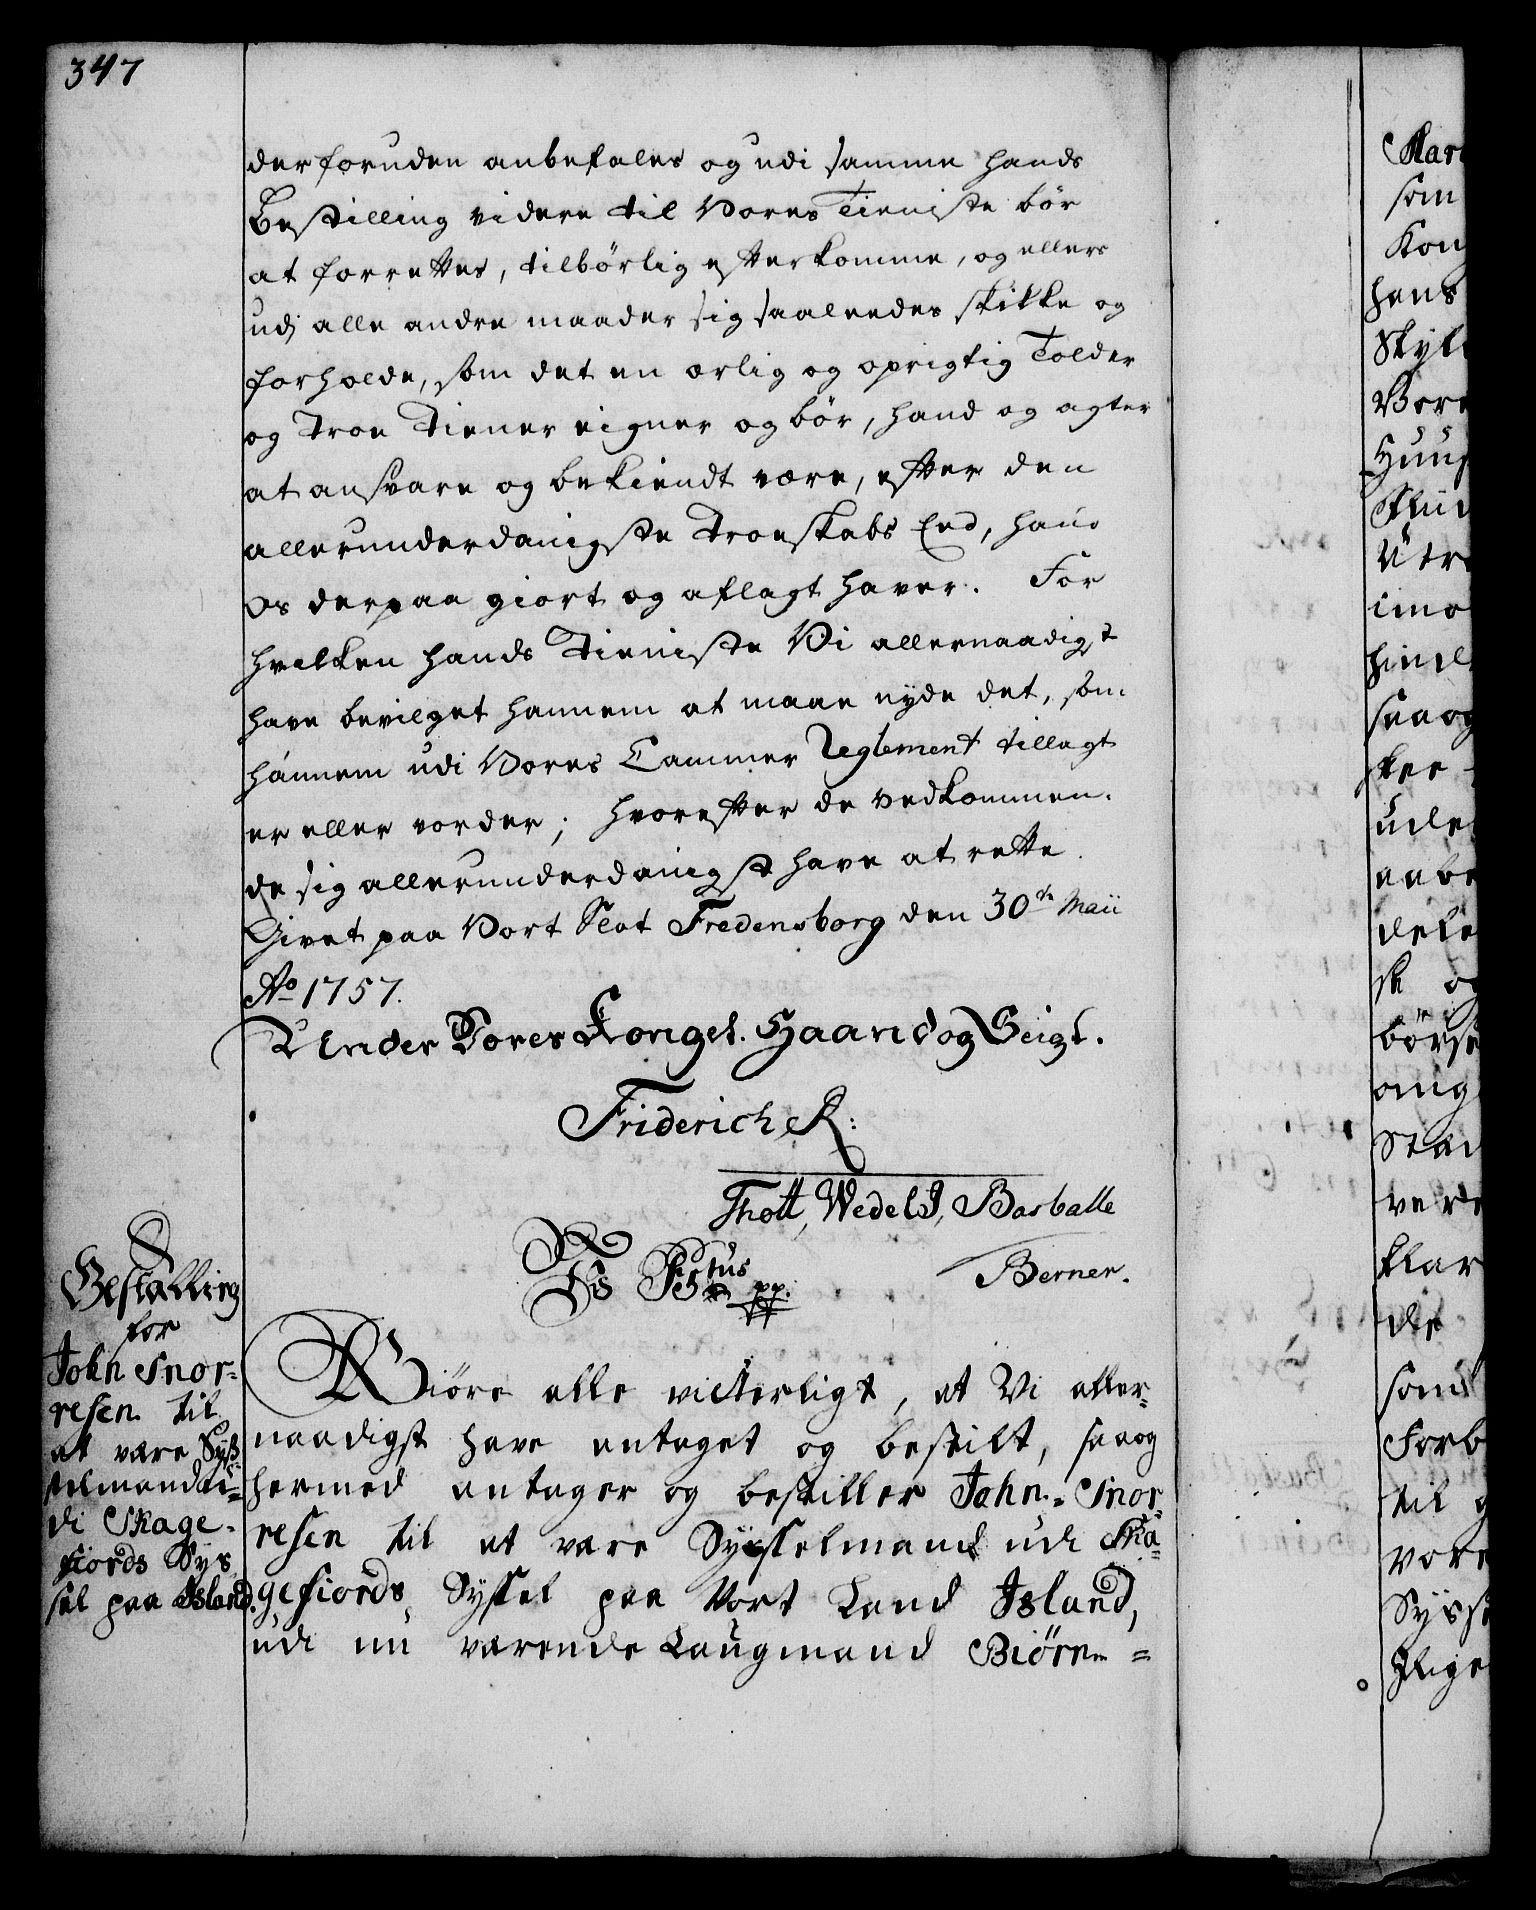 347
der foruden anbefales og udi samme hands
Bestilling videre til Vores Tieniste bör
at forrettes, tilbörlig efterkomme, og ellers
udj alle andre maader sig saaleedes skikke og
forholde, som det en ærlig og oprigtig Tolder
og Troe Tiener eigner og bör, hand og agter
at ansvare og bekiendt være, efter den
allerunderdanigste Troeskabs Eed, hand
Os derpaa giort og aflagt haver. For
hvilken hands Tieniste Vi allernaadigst
have bevilget hannem at maae nyde det, som
hannem udi Vores Cammer Reglement tillagt
er eller vorder; hvorefter de vedkommen-
de sig allerunderdanigst have at rette.
Givet paa Vort Slot Fredensborg den 30te Maii
Ao 1757.
Under Vores Kongel. Haand og Seigl.
Friderich R:
Thott, Wedel J, Barballe
Berner.
Bestalling
for
John Snor-
resen til
at være Syß-
selmand u-
di Skage-
fiords Sys
sel paa Island.
Vis F5tus pp.
Giöre alle vitterligt, at Vi aller-
naadigst have antaget og bestilt, saa og
hermed antager og bestiller John Snor-
resen til at være Sysselmand udi Ska-
gefiords Syssel paa Vort Land Island,
udi nu værende Laugmand Biörn =
som
Kon
hans
Skyl
Vore
Huus
imo
saa og
skee
ude
aabe
dele
sk og
börse
ang
Stad
være
klar
de
som
Forb
til g
vore
Sysse
Flige